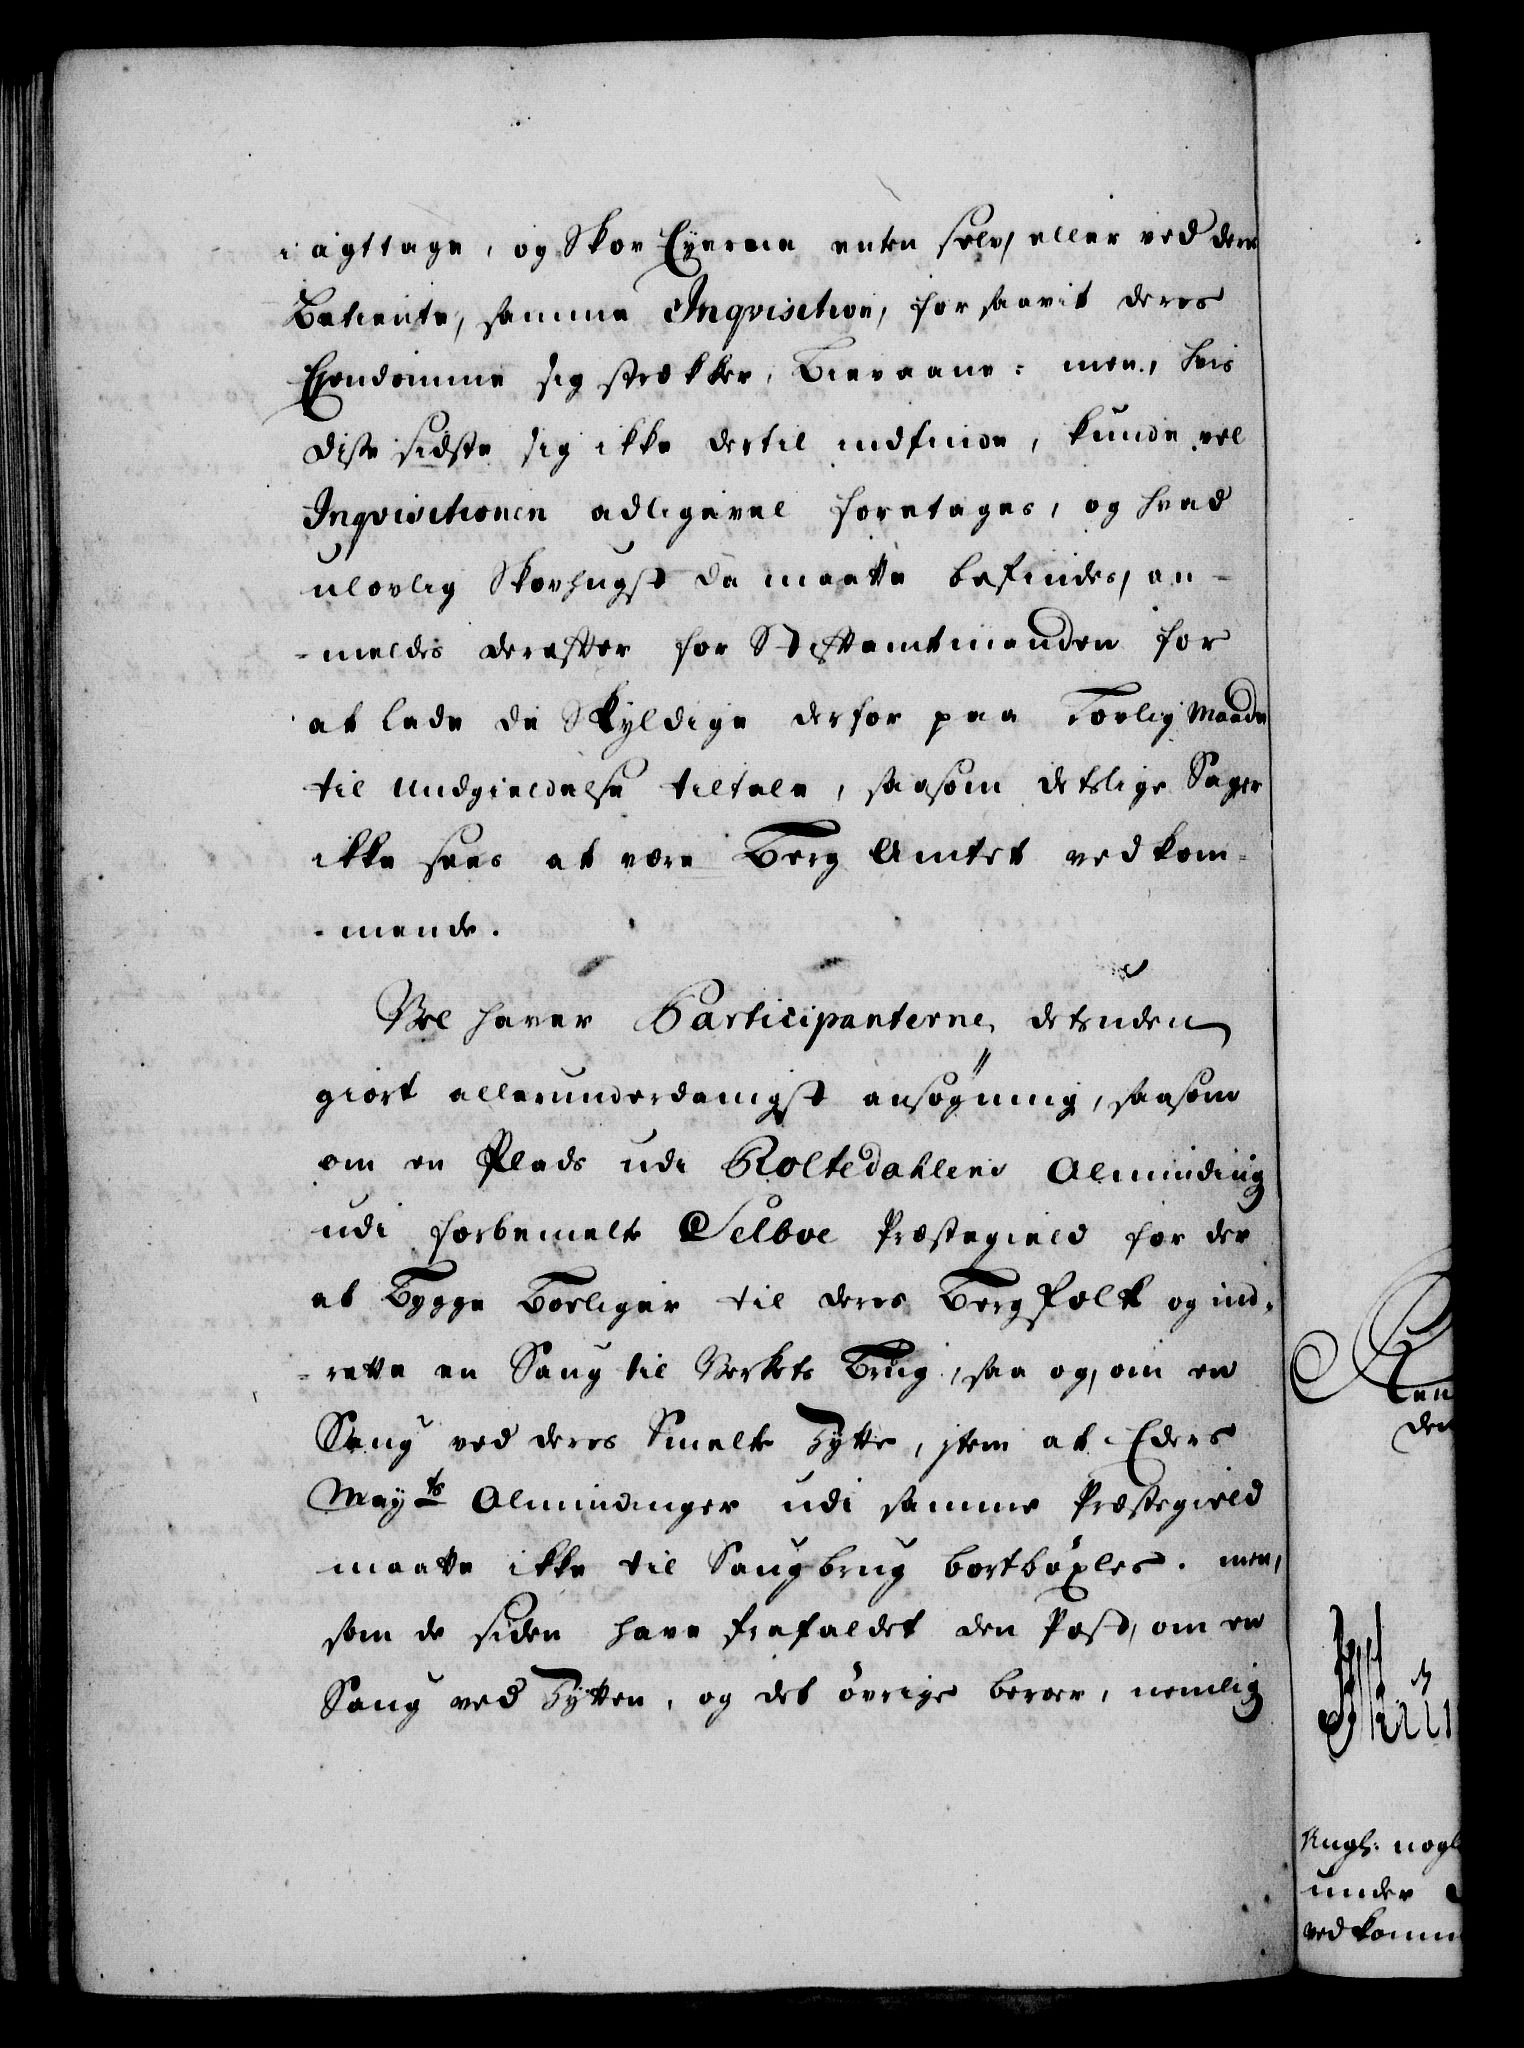 i agttage, og Skov Eyerne enten selv, eller ved deres
Betiente, samme Inqvisition, for saavit deres
Ejendomme sig strækker, Bievaane: men, hvis
disse sidste sig ikke dertil indfinde, kunde vel
Inqvisitionen adligevel foretages, og hvad
ulovlig Skovhugst da maatte befindes, an-
-meldes derefter for Stiftamtmanden for
at lade de Skyldige derfor paa Lovlig Maade
til Undgieldelse tiltale, saasom detslige Sager
ikke sees at være Berg Amtet vedkom-
-mende.
Vel haver Participanterne, detsuden
giort allerunderdanigst ansøgning, saasom
om en Plads udi Roltedahlens Alminding
udi forbemelte Selboe Præstegield for der
at Bygge Boeliger til deres Bergfolk og ind-
-rette en Saug til Verkets Brug, saa og, om en
Saug ved deres Smelte Hytte, item at Eders
May<sup>ts</sup> Almindinger udi samme Præstegield
maatte ikke til Saugbrug bortbøxles. men,
som de siden have frafaldet den Post, om en
Saug ved Hytten, og det øvrige beroer, nemlig
den
Angl: nogl
under
vedkomm